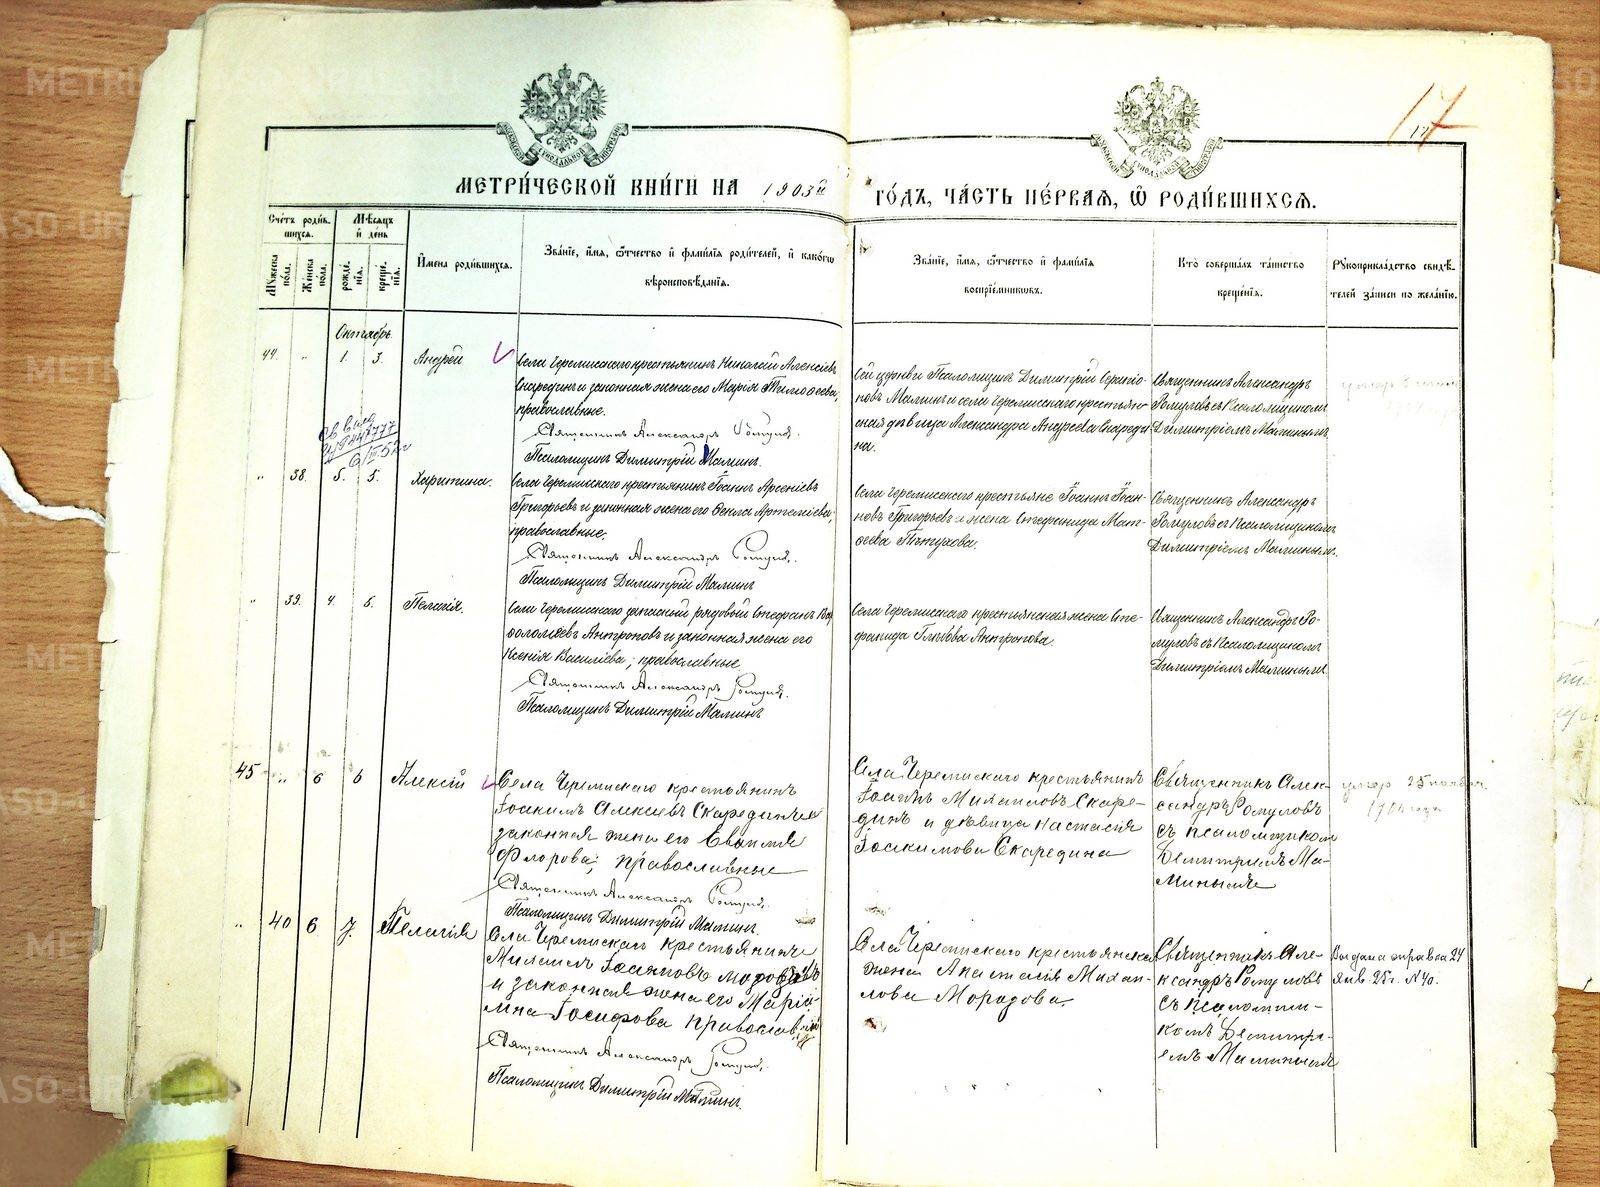 17
МЕТРИ́ЧЕСКОЙ КНИ́ГИ НА 1903й ГО́ДЪ, ЧА́СТЬ ПЕ́РВАЯ, Ѿ РОДИ́ВШИХСЯ.
Сче́тъ роди́вшихся.
Мѣ́сяцъ и́ де́нь
Му́жеска по́ла.
Же́нска по́ла.
рожде́нїя.
креще́нїя.
Имена̀ роди́вшихся.
Зва́нїе, и́мя, ѻ́тчество и́ фами́лїя роди́телей, и́ како́гѡ
вѣроисповѣ́данїя.
Зва́нїе, и́мя, ѻ́тчество и́ фами́лїя
воспрїе́мниковъ.
Кто̀ соверша́лъ та́инство
креще́нїя.
Рукоприкла́дство свидѣ́-
телей за́писи по жела́нїю.
Октябрь
44. " 1. 3. Андрей
Села Черемисскаго крестьянинъ Николай Алексѣевъ
Скарединъ и законная жена его Марія Тимоѳеева,
православные.
Священникъ Александръ Ромуловъ.
Псаломщикъ Димитрій Маминъ.
Сей церкви Псаломщикъ Димитрій Серапіо-
новъ Маминъ и села Черемисскаго крестьян-
ская дѣвица Александра Андреева Скареди-
на.
Священникъ Александръ
Ромуловъ съ Псаломщикомъ
Димитріемъ Маминымъ
" 38. 5. 5. Харитина.
Села Черемисскаго крестьянинъ Іоаннъ Арсеніевъ
Григорьевъ и законная жена его Ѳекла Артеміева,
православные.
Священникъ Александръ Ромуловъ.
Псаломщикъ Димитрій Маминъ
Села Черемисскаго крестьяне Іоаннъ Іоан-
новъ Григорьевъ и жена Стефанида Мат-
ѳеева Пѣтухова.
Священникъ Александръ
Ромуловъ съ Псаломщикомъ
Димитріемъ Маминымъ.
" 39. 4. 5. Пелагія.
Села Черемисскаго запасный рядовый Стефанъ Вар-
ѳоломѣевъ Антроповъ и законная жена его
Ксенія Василіева; православные
Священникъ Александръ Ромуловъ.
Псаломщикъ Димитрій Маминъ
Села Черемисскаго крестьянская жена Сте-
фанида Глѣбова Антропова.
Священникъ Александръ Ро-
муловъ съ Псаломщикомъ
Димитріемъ Маминымъ.
45 " 6 6 Алексій
Села Черемискаго крестьянинъ
Іоакимъ Алексевъ Скарединъ и
законная жена его Евѳимія
Флорова; православные
Священникъ Александръ Ромуловъ.
Псаломщикъ Димитрій Маминъ.
Села Черемискаго крестьянинъ
Іоаннъ Михаиловъ Скаре-
динъ и дѣвица Настасія
Іоакимова Скаредина
Священникъ Алек-
сандръ Ромуловъ
съ псаломщиком
Демитріемъ Ма-
минымъ
умер 25 ноября
" 40 6 7. Пелагія
Села Черемискаго крестьянинъ
Михаилъ Іоанновъ Мороз
и законная жена его Марі
мна Іосифова православные
Священникъ Александръ Ромуловъ.
Псаломщикъ Димитрій Маминъ.
Села Черемискаго крестьянская
жена Анастасія Михаи-
лова Морозова
Священникъ Але-
ксандръ Ромуловъ
съ псаломщи-
комъ Демитрі-
емъ Маминымъ
Выдана справка 24
янв. 25 г. №40.